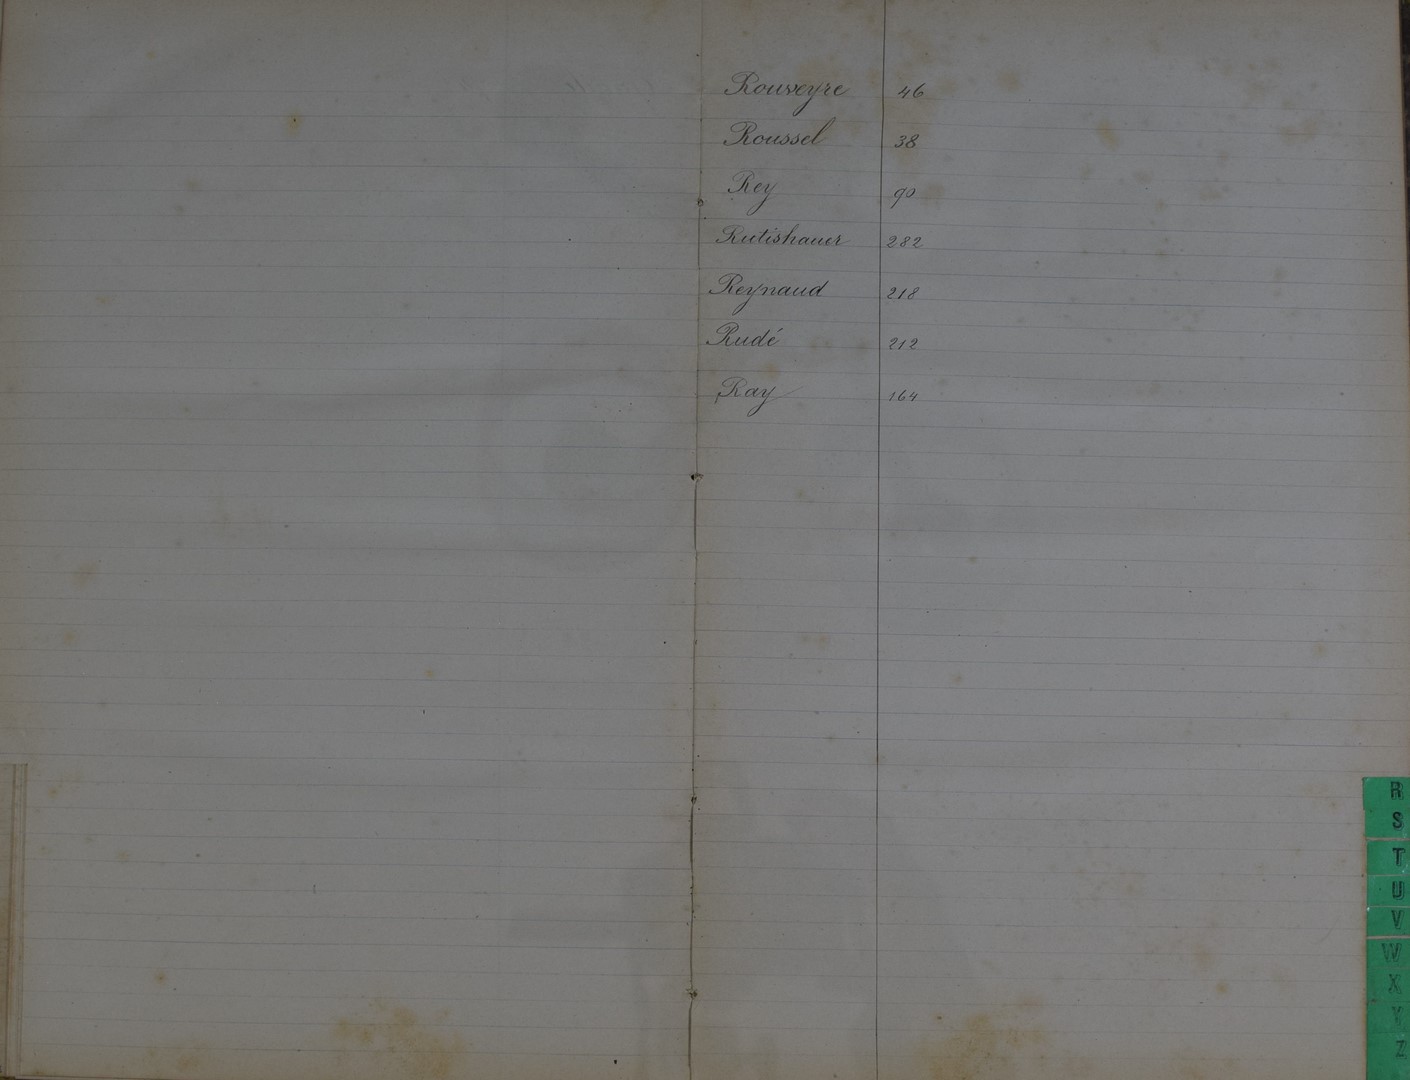 Rouveyre 46
Roussel 38
Rey 90
Rutishauer 282
Reynaud 218
Rudé 212
Ray 164
R
S
T
U
V
W
X
Y
Z